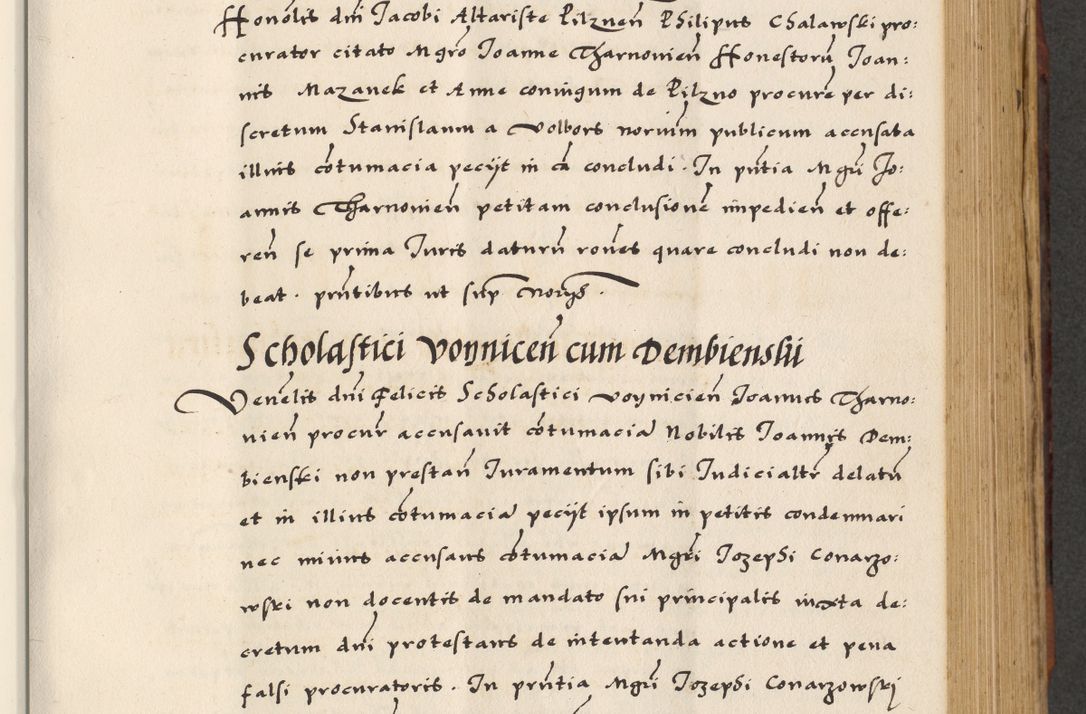 Honolis dni Jacobi Altariste Pilznen Philipus Chalawski pro:
curator citato Mgro Joanne Tharnovien Honestorum Joan:
nis Mazanek et Anne coniugum de Pilzno procure per di:
scretum Stanislaum a Volbors norium publicum accusata
illius cotumacia peciit in ca concludi. In pntia Mgri Jo:
annis Tharnovien petitam conclusione impedien et offe:
ren se prima Juris daturu rones quare concludi non de:
beat. pntibus ut sup Noriis.
Scholastici Voynicen cum Dembienskii
Venelis dni Felicis Scholastici Voynicien Joannes Tharno:
vien procur accusavit cotumacia Nobilis Joannis Dem:
bienski non prestan Juramentum sibi Judicialtr delatu
et in illius cotumacia peciit ipsum in petitis condemnari
nec minus accusans cotumacia Mgri Jozephi Conarzo:
wski non docentis de mandato sui principalis iuxta de:
cretum dni protestans de intentanda actione et pena
falsi procuratoris. In pntia Mgri Jozephi Conarzowski